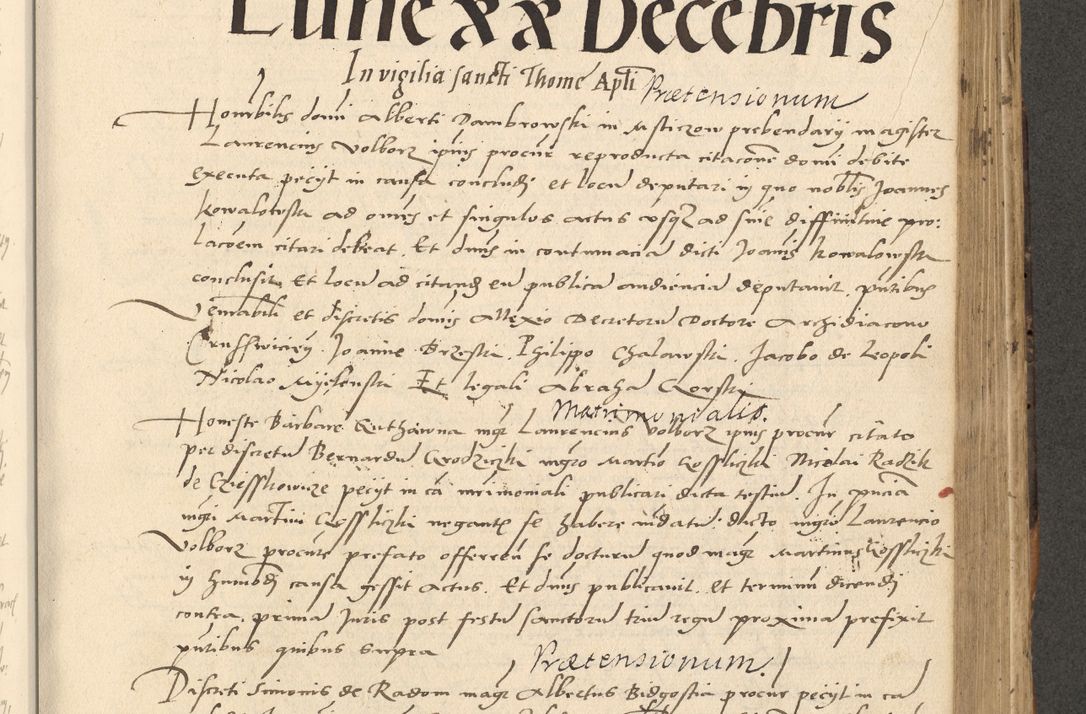 Lune xx Decebris
In vigilia sancti Thome Apli Prætensionum
Honorbilis domi Alberti Dambrowski in Msticzow prebendarij magister
Laurencius Volborz ipius procur reproducta citacone domi debite
executa peciit in causa concludj et locu deputari in quo nobilis Joannes
Kowalowski ad omes et singulos actus usqz ad sniē diffinitiue pro:
lacoem citari debeat. Et dnus in contumacia dicti Joanis Kowalowski
conclusit, Et locu ad citandj eu publica audiencia deputauit, pntibus
Venerabili et discretis domis Allexio Decretoru Doctore Archidiacono
Crusswicien Joanne Brzeski, Philippo Chalawski, Jacobo de Leopoli
Nicolao Myelenski Et legali Abraha Gorski
Matrimonialis.
Honeste Barbare Guthawna mgr Laurencius Volborz ipius procur citato
per discretu Bernardu Grodziczki mgro Martio Gossliczki Nicolai Radzik
de peciit in ca mrimoniali publicari dicta testiu. In pncia
mgri Martini Gossliczki negante se habere mdatu: dicto mgro Laurencio
Volborz procure prefato offerren se docturu quod magr Martinus Gossliczki
in hmoi causa gessit actus. Et dnus publicauit, et terminu dicendj
contra, prima Juris post festu sanctoru triu regu proxima prefixit
pntibus quibus supra
Prætensionum.
Discreti Simonis de Radom magr Albertus Bidgostia procur peciit in ca